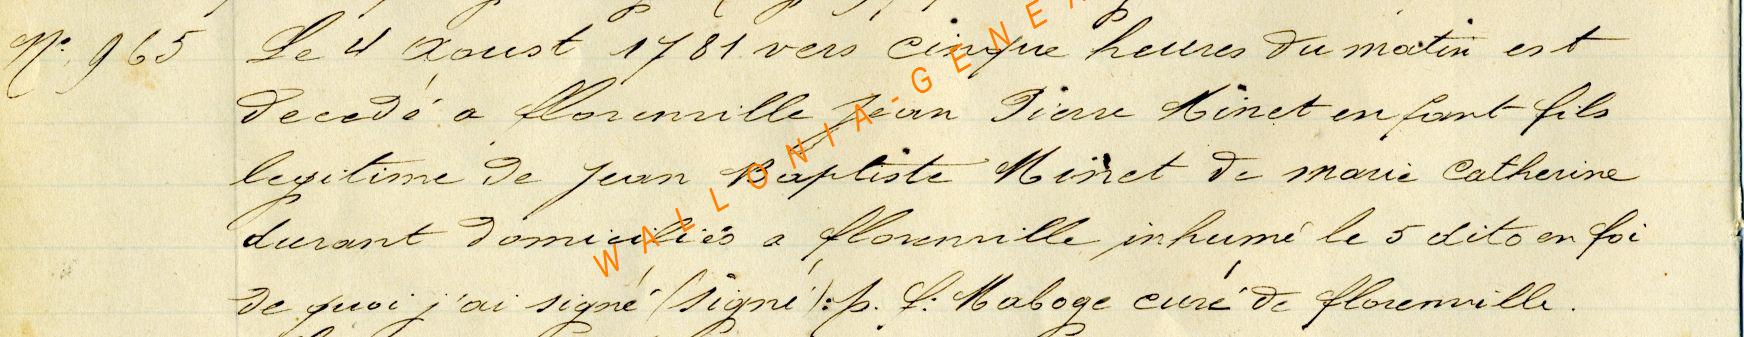 N° 965 Le 4 Aoust 1781 vers cinque heures du matin est
decedé a florenville Jean Pierre Minet enfant fils
legitime de Jean Baptiste Minet de marie Catherine
durant domiciliés a florenville inhumé le 5 dito en foi
de quoi j'ai signé (signé): p. f: Maboge curé de florenville.
WALLONIA-GENEA